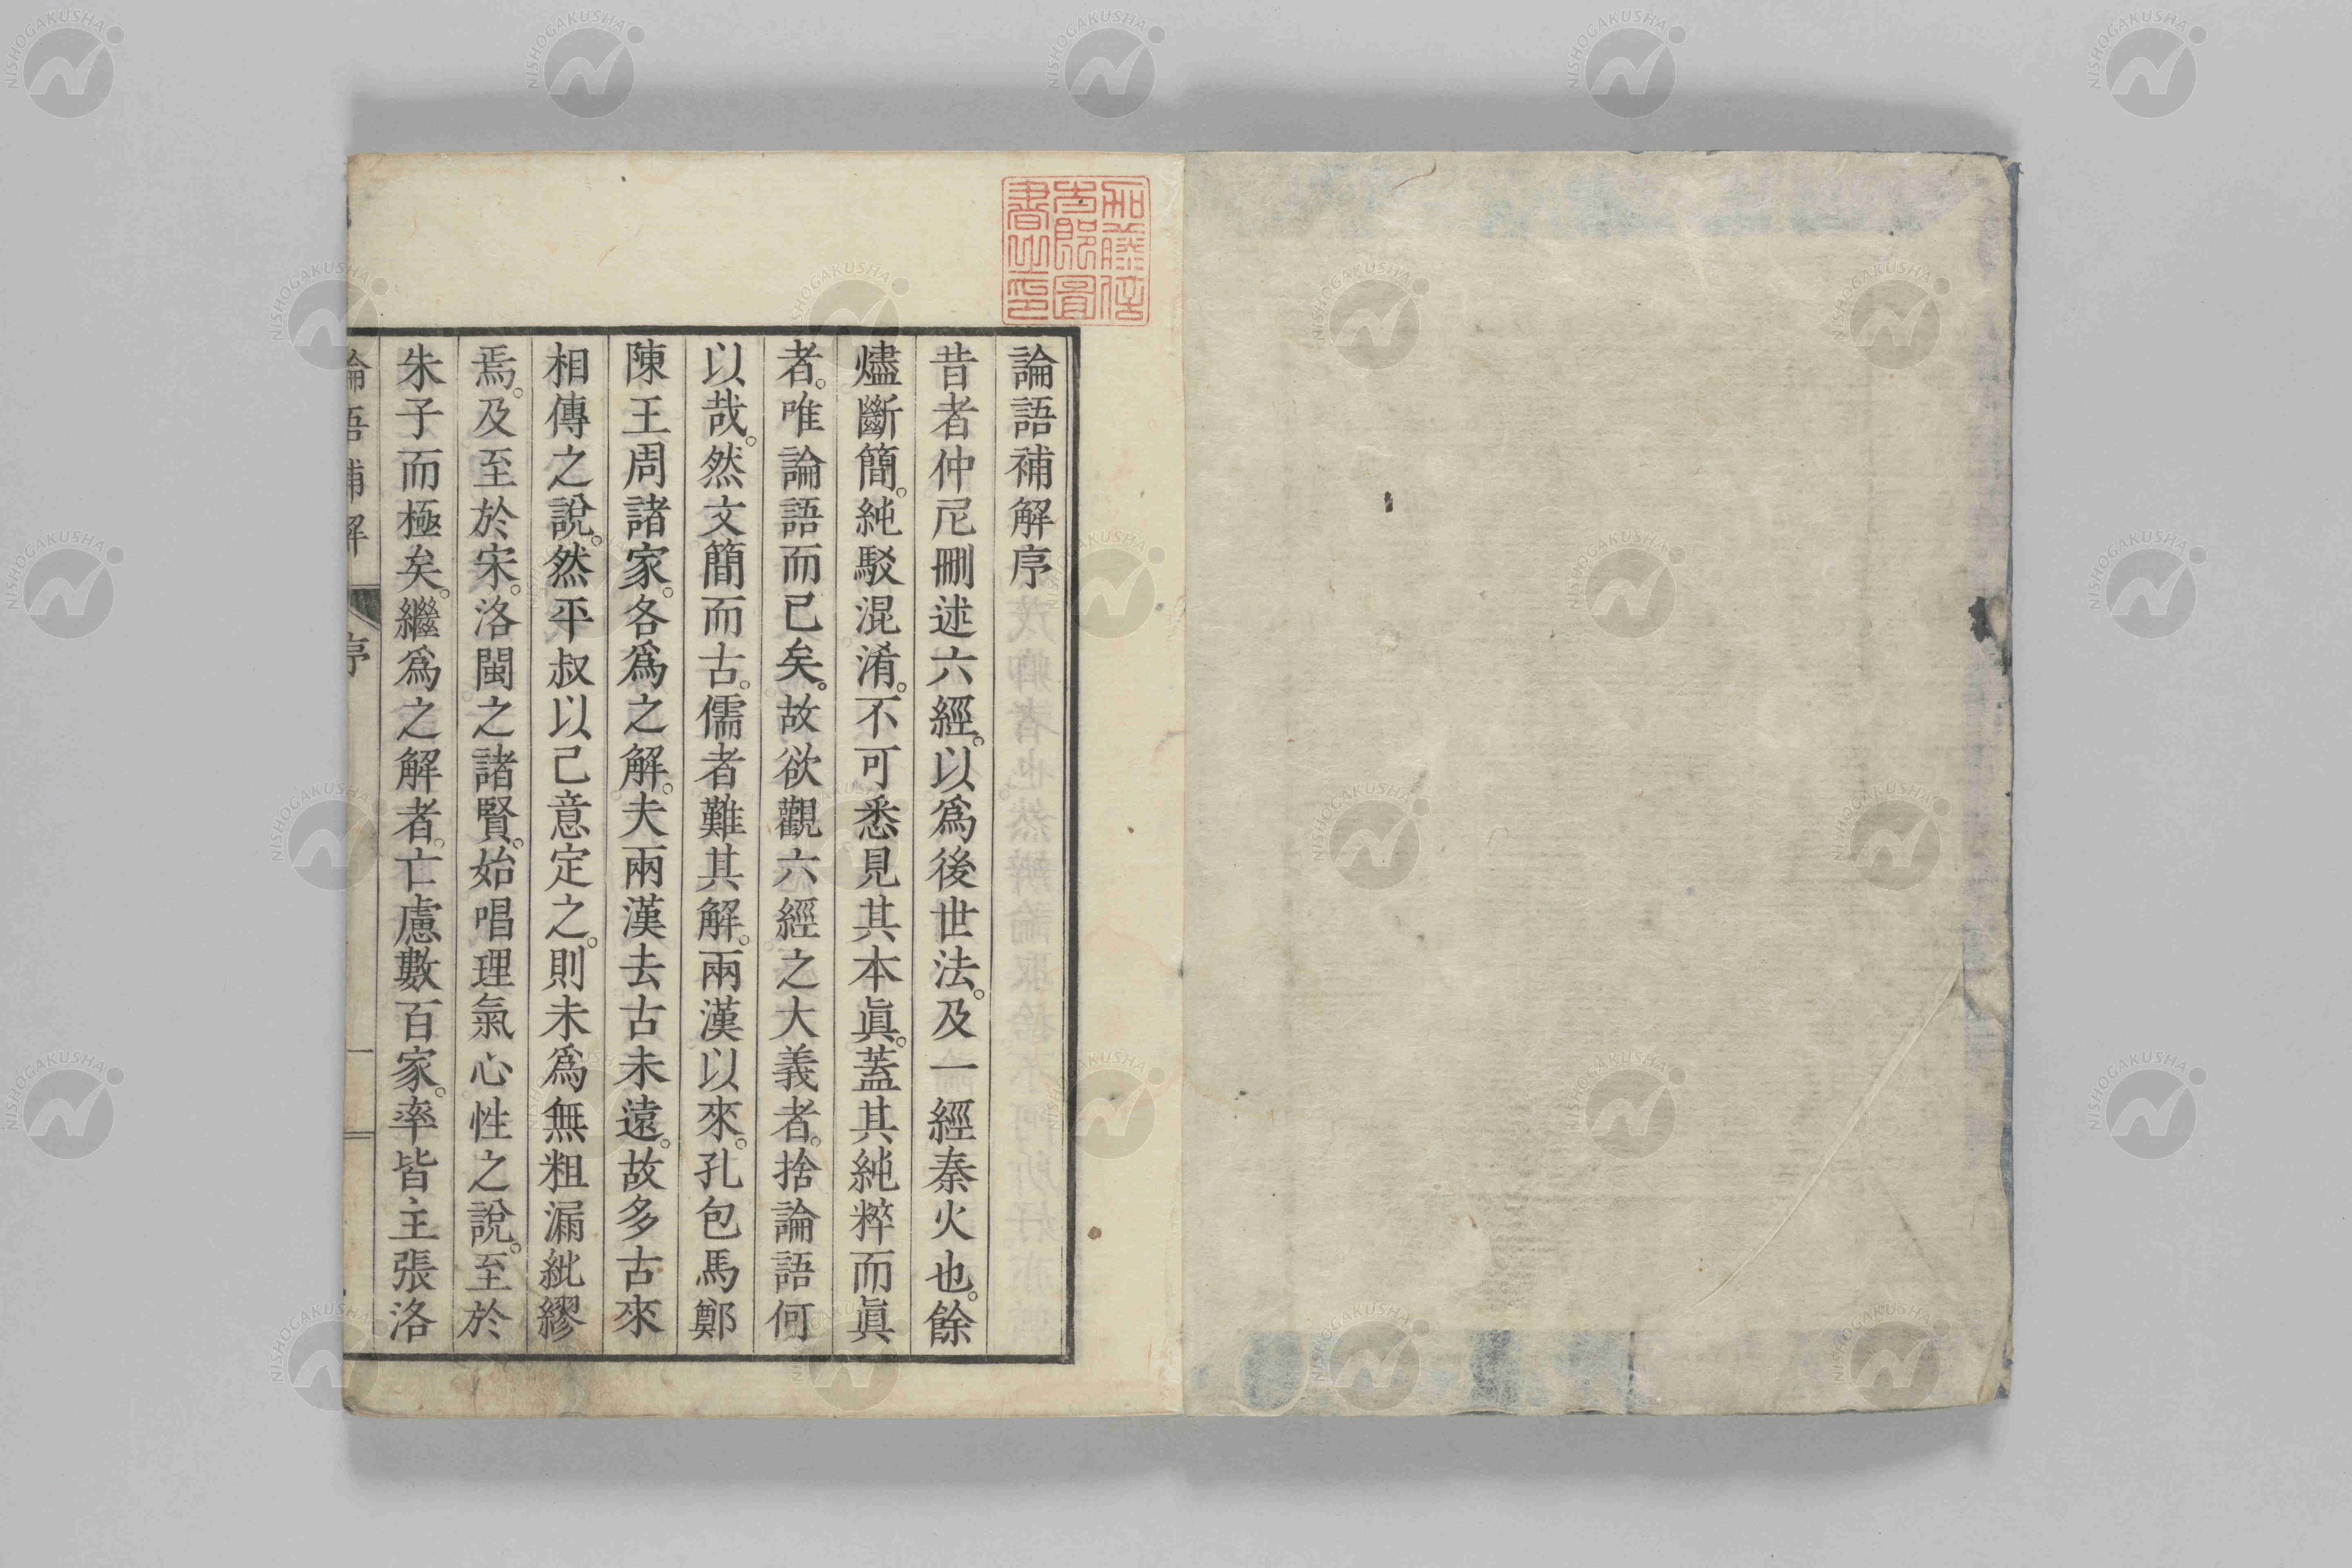 論語補解序
昔者仲尼刪述六經。以爲後世法。及一經秦火也。餘
燼斷簡。純駁混淆。不可悉見其本眞。蓋其純粹而眞
者。唯論語而已矣。故欲觀六經之大義者。捨論語何
以哉。然文簡而古。儒者難其解。兩漢以來。孔包馬鄭
陳王周諸家。各爲之解。夫兩漢去古未遠。故多古來
相傳之說。然平叔以己意定之。則未爲無粗漏紕繆
焉。及至於宋。洛閩之諸賢。始唱理氣心性之說。至於
朱子而極矣。繼爲之解者。亡慮數百家。率皆主張洛
論語補解 序 一
NISHOGAKUSHA